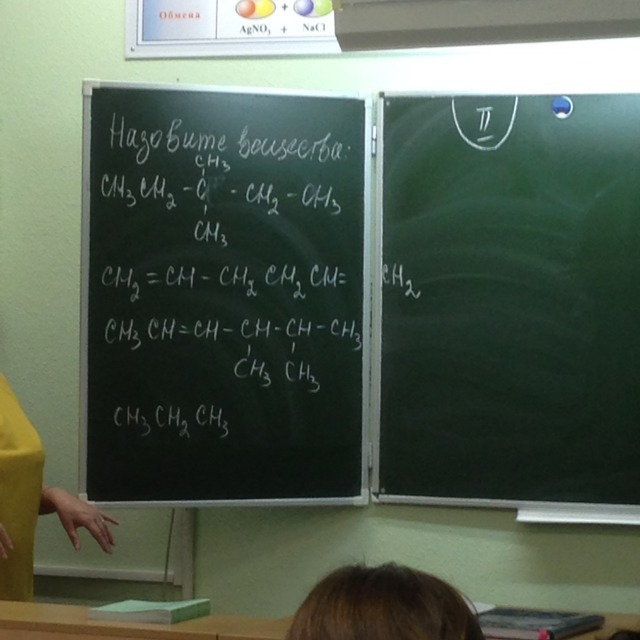 Обмена
+
AgNO₃ + NaCl
Назовите вещества:
CH₃
CH₃ CH₂ - C - CH₂ - CH₃
CH₃
CH₂ = CH - CH₂ CH₂ CH = CH₂
CH₃ CH = CH - CH - CH - CH₃
CH₃ CH₃
CH₃ CH₂ CH₃
II